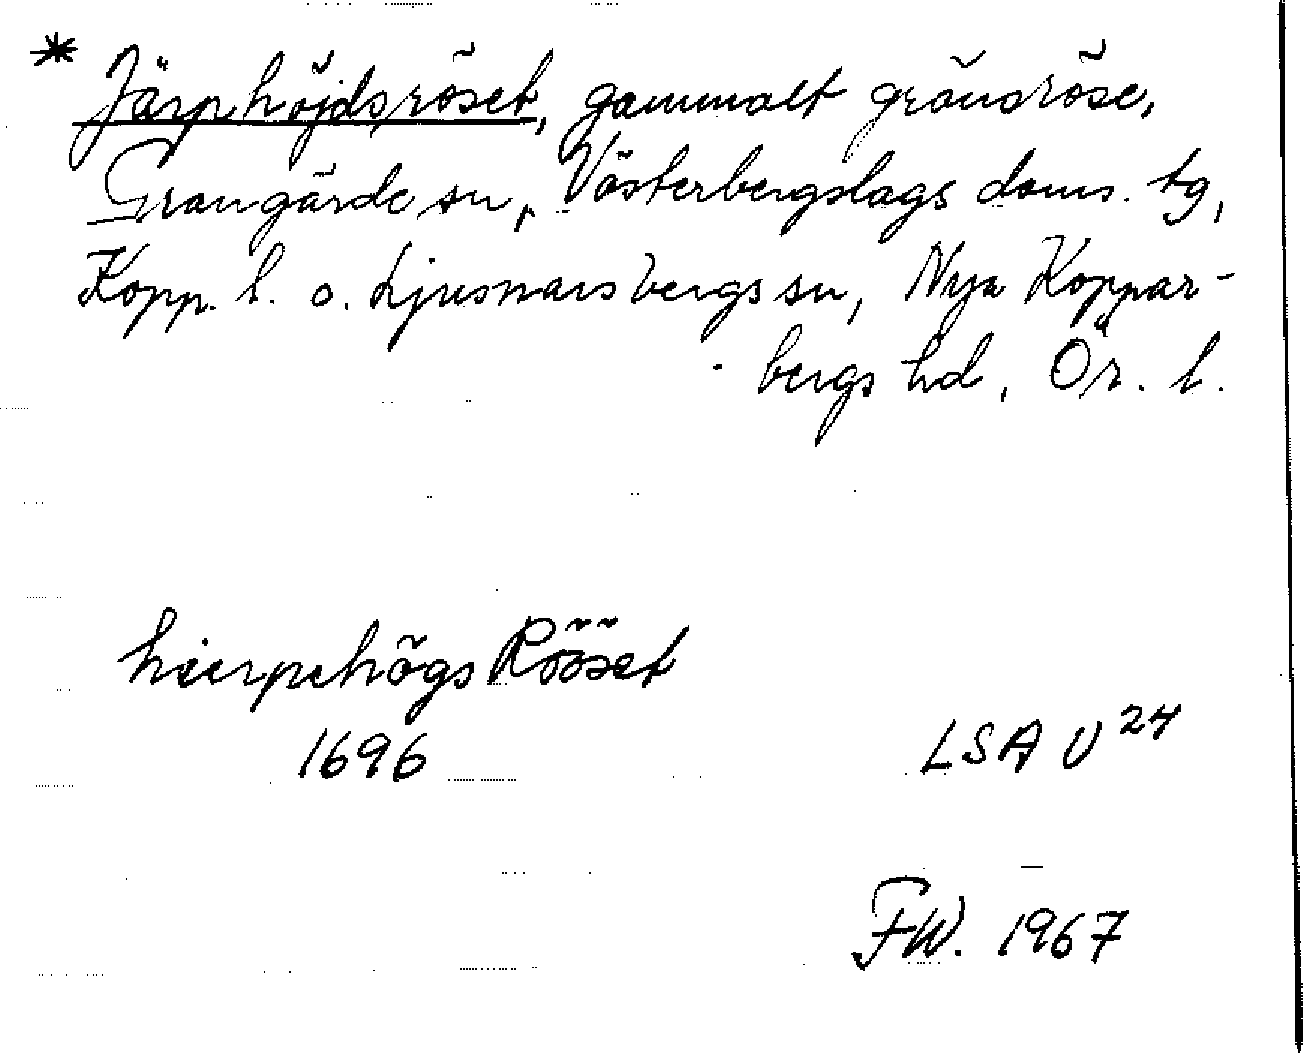 * Järphöjdsröset, gammalt gränsröse,
Grangärde sn, Västerbergslags doms. tg,
Kopp. l. o. Ljusnarsbergs sn, Nya Koppar-
bergs hd, Ör. l.
hierpehögs Rööset
1696
LSA U 24
FW. 1967